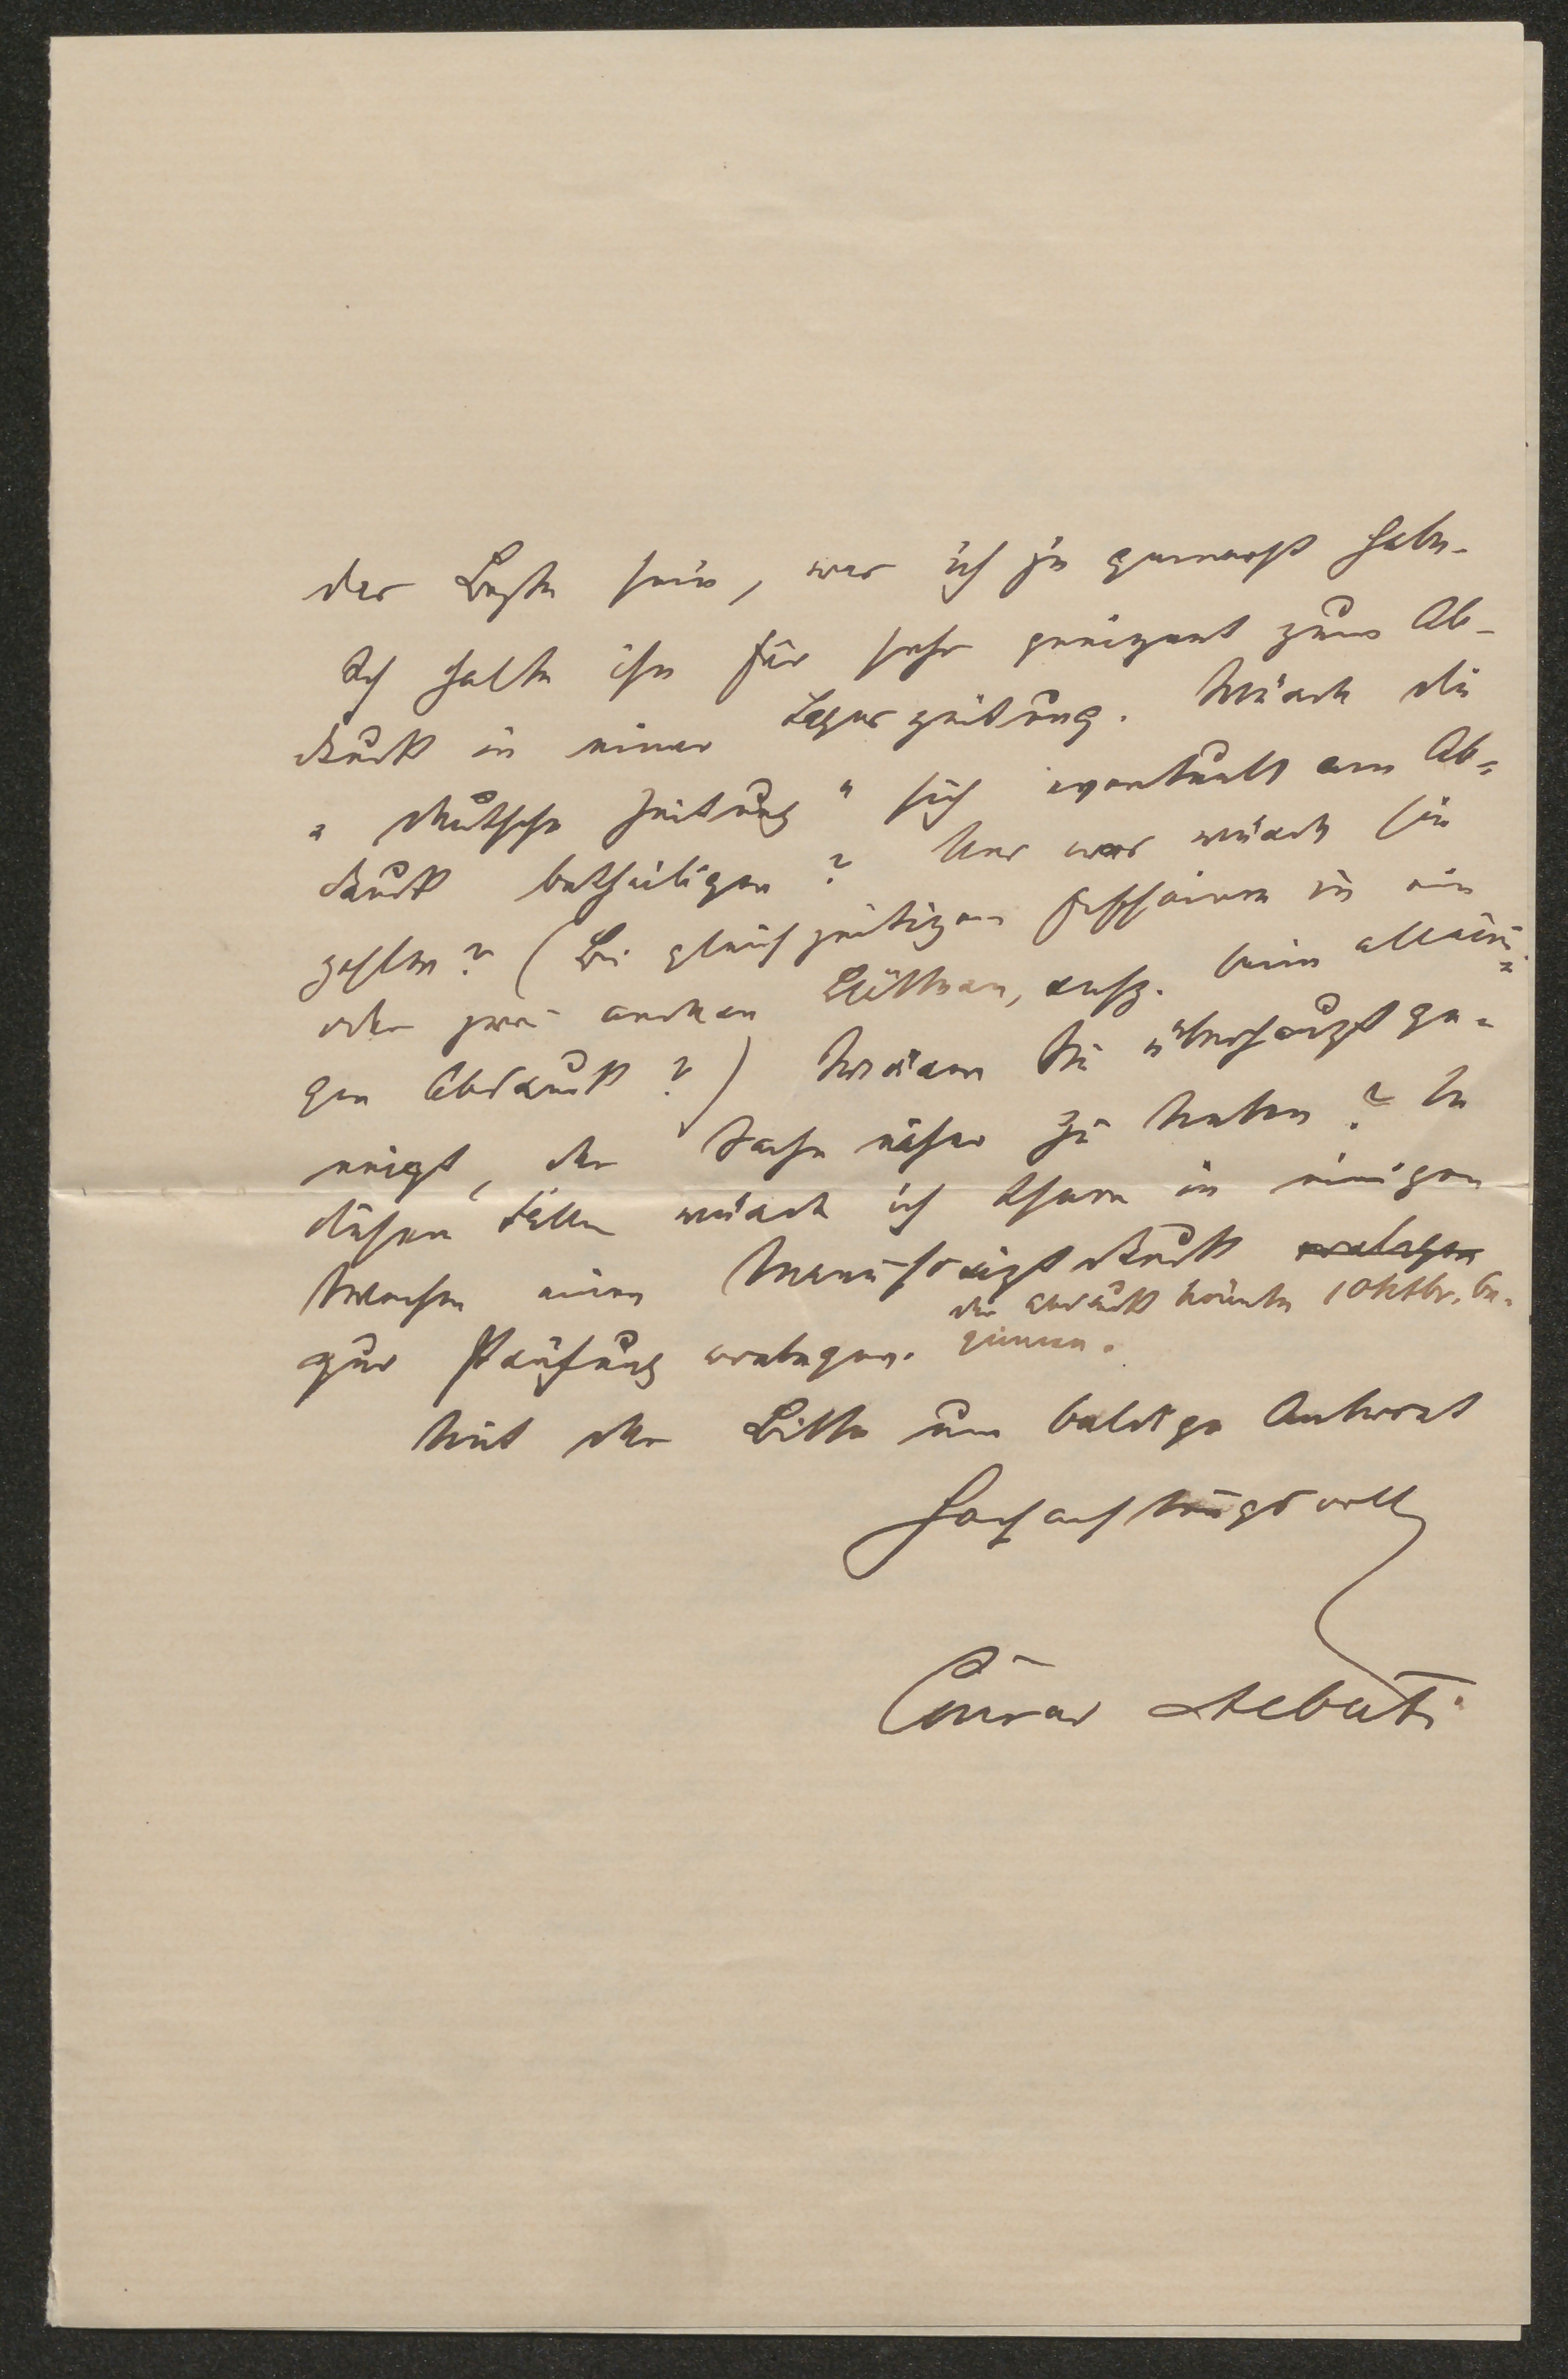 das Beste sein, was ich je gemacht habe.
Ich halte ihn für sehr geeignet zum Ab-
druck in einer Tageszeitung. Würde die
„Deutsche Zeitung" sich eventuell am Ab=
druck betheiligen? Und was würde sie
zahlen? (Bei gleichzeitigem Erscheinen in ein
oder zwei andren Blättern, resp. beim alleini=
gen Abdruck?) Wären Sie überhaupt ge-
neigt, der Sache näher zu treten? In
diesem Falle würde ich Ihnen in einigen
Wochen einen Manuscriptdruck vorlegen
zur Prüfung vorlegen. Der Abdruck könnte 1 Oktbr. be-
ginnen.
Mit der Bitte um baldige Antwort
Hochachtungsvoll
Conrad Alberti